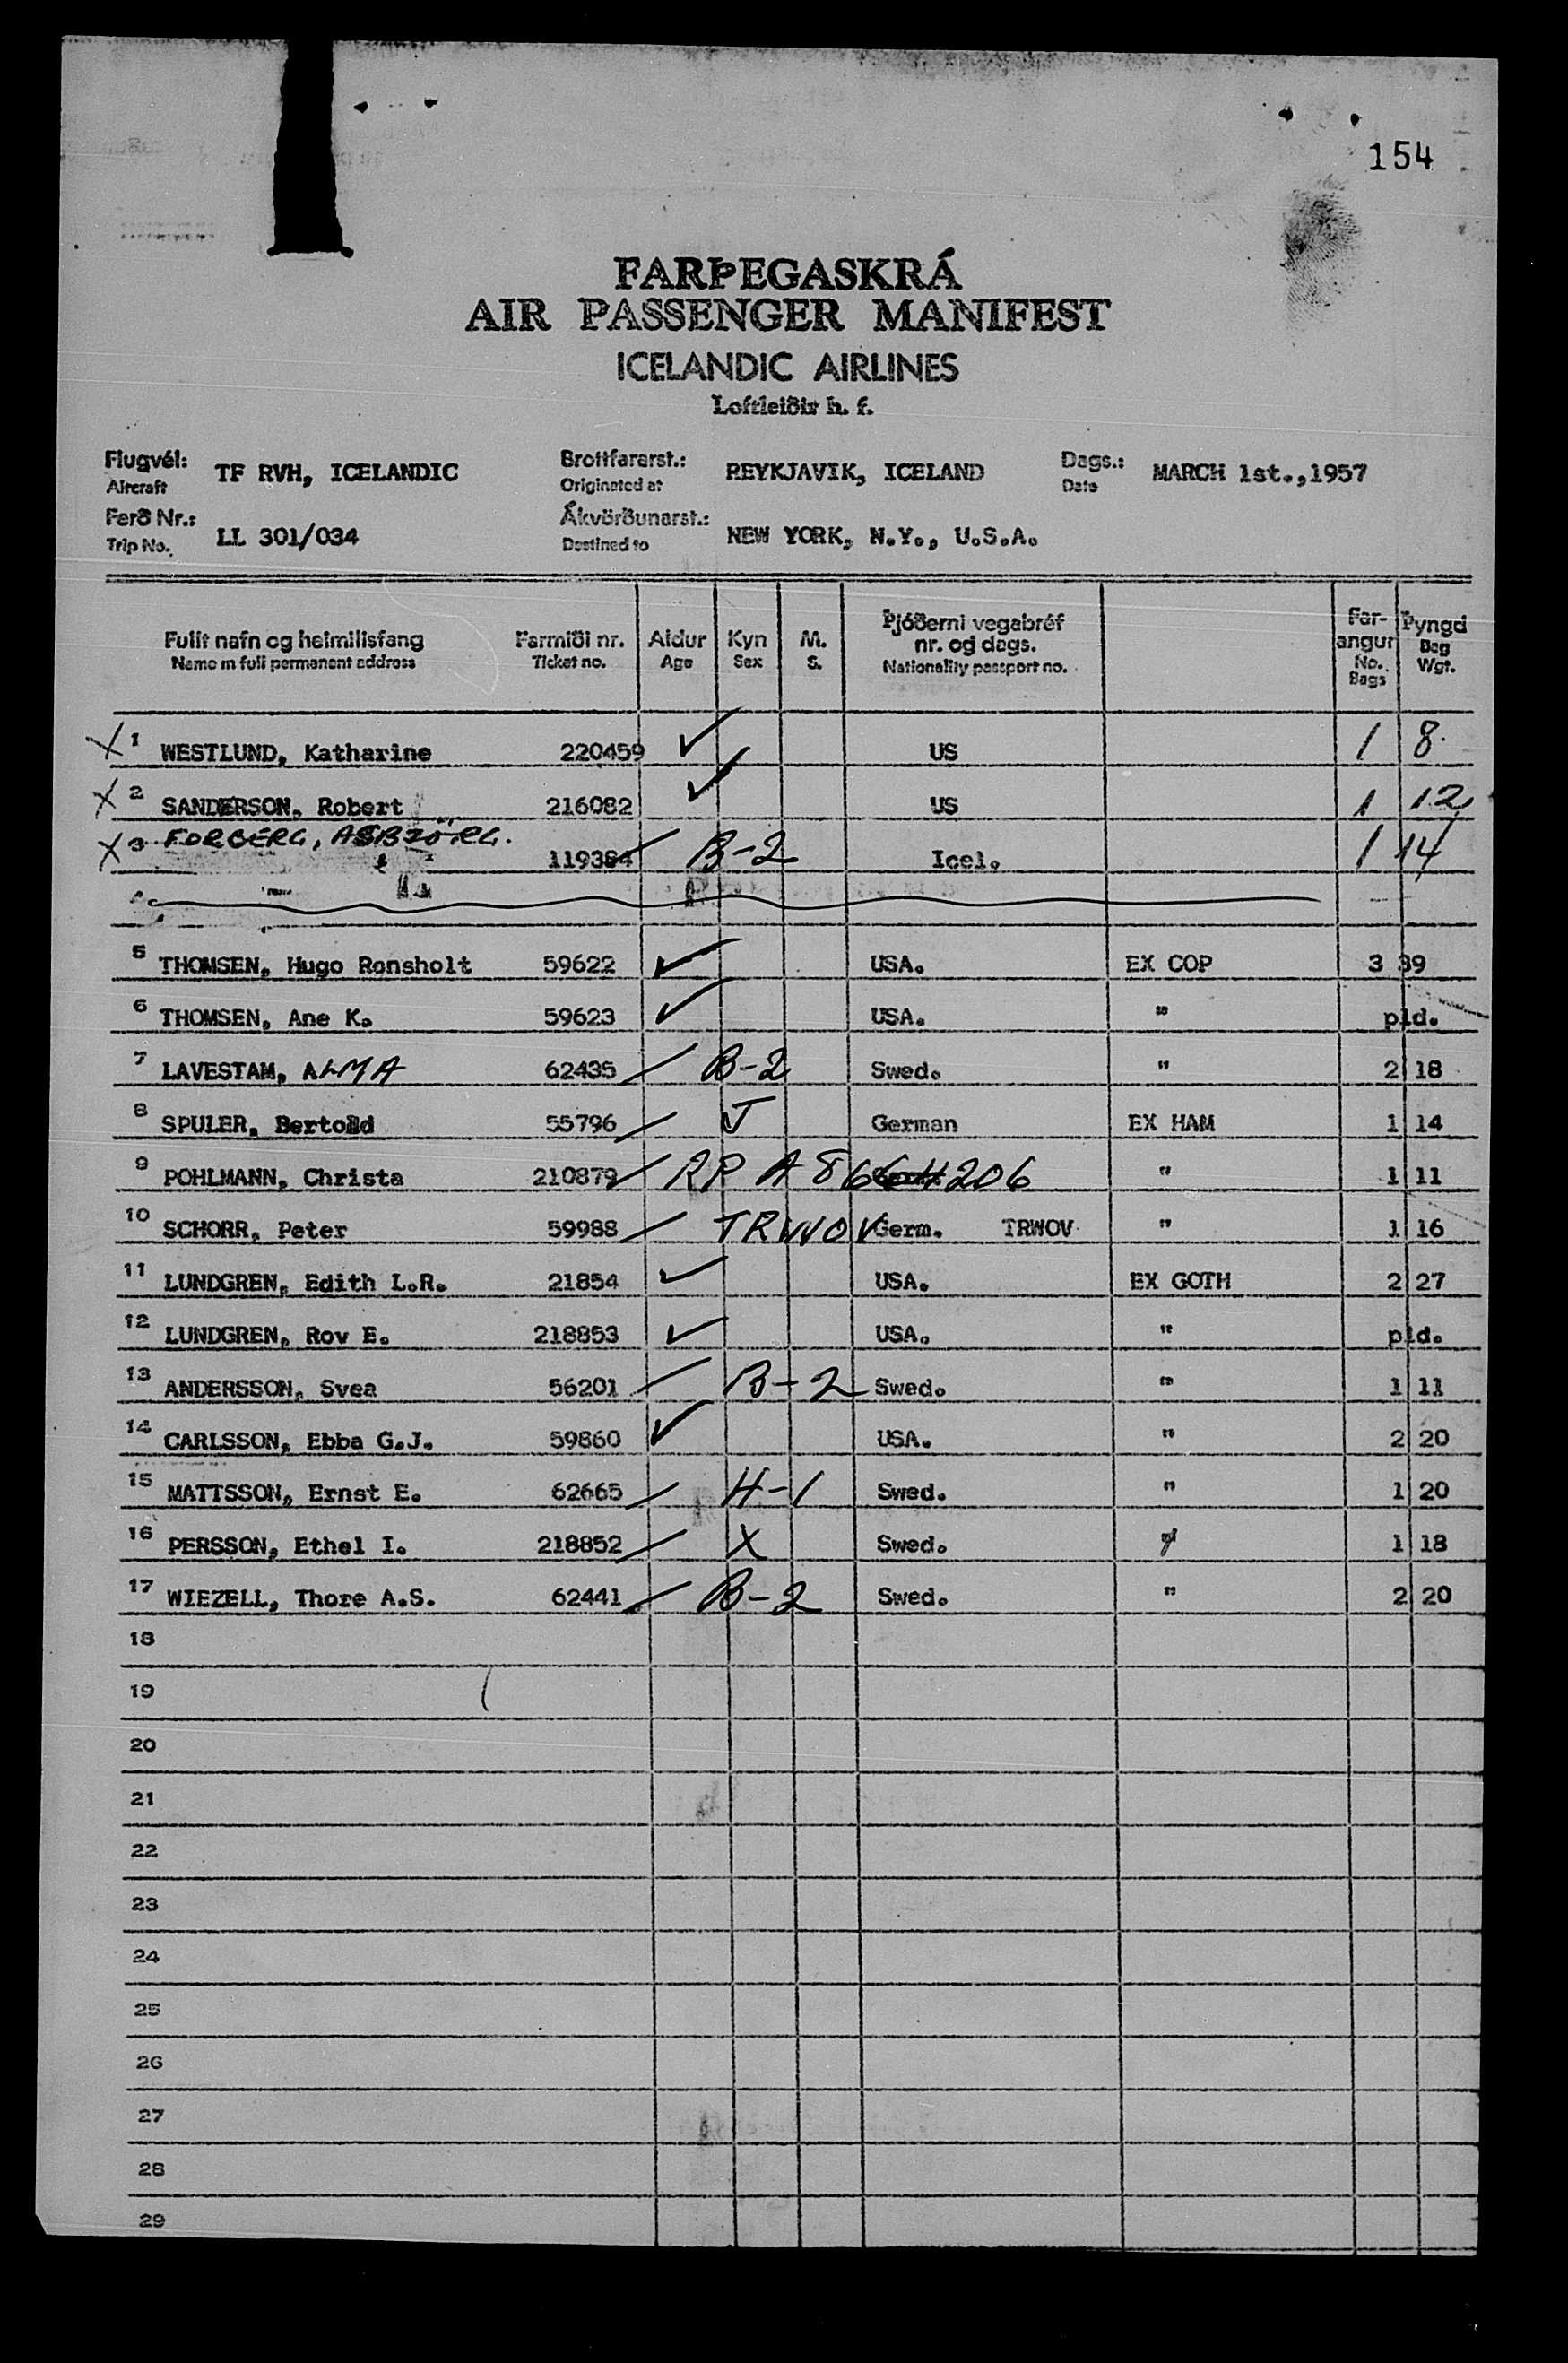 154
FARÞEGASKRÁ
AIR PASSENGER MANIFEST
ICELANDIC AIRLINES
Loftleiðir h. f.
Flugvél: Aircraft TF RVH, ICELANDIC Brottfararst.: Originated at REYKJAVIK, ICELAND Dags.: Date MARCH 1st.,1957
Ferð Nr.: Trip No. LL 301/034 Ákvörðunarst.: Destined to NEW YORK, N.Y., U.S.A.
Fullt nafn og heimilisfang Name in full permanent address Farmiði nr. Ticket no. Aldur Age Kyn Sex M. S. Þjóðerni vegabréf nr. og dags. Nationality passport no. Far-angur No. Bags Þyngd Bag Wgt.
X 1 WESTLUND, Katharine 220459 ✓ US 1 8.
X 2 SANDERSON, Robert 216082 ✓ US 1 12
X 3 FORBERG, ASBJÖRG. 119384 B-2 Icel. 1 14
5 THOMSEN, Hugo Ronsholt 59622 ✓ USA. EX COP 3 39
6 THOMSEN, Ane K. 59623 ✓ USA. " pld.
7 LAVESTAM, ALMA 62435 B-2 Swed. " 2 18
8 SPULER, Bertold 55796 J German EX HAM 1 14
9 POHLMANN, Christa 210879 RP A 8 206 " 1 11
10 SCHORR, Peter 59988 TRWOV Germ. TRWOV " 1 16
11 LUNDGREN, Edith L.R. 21854 ✓ USA. EX GOTH 2 27
12 LUNDGREN, Rov E. 218853 ✓ USA. " pld.
13 ANDERSSON, Svea 56201 B-2 Swed. " 1 11
14 CARLSSON, Ebba G.J. 59860 ✓ USA. " 2 20
15 MATTSSON, Ernst E. 62665 H-1 Swed. " 1 20
16 PERSSON, Ethel I. 218852 X Swed. " 1 18
17 WIEZELL, Thore A.S. 62441 B-2 Swed. " 2 20
18
19
20
21
22
23
24
25
26
27
28
29